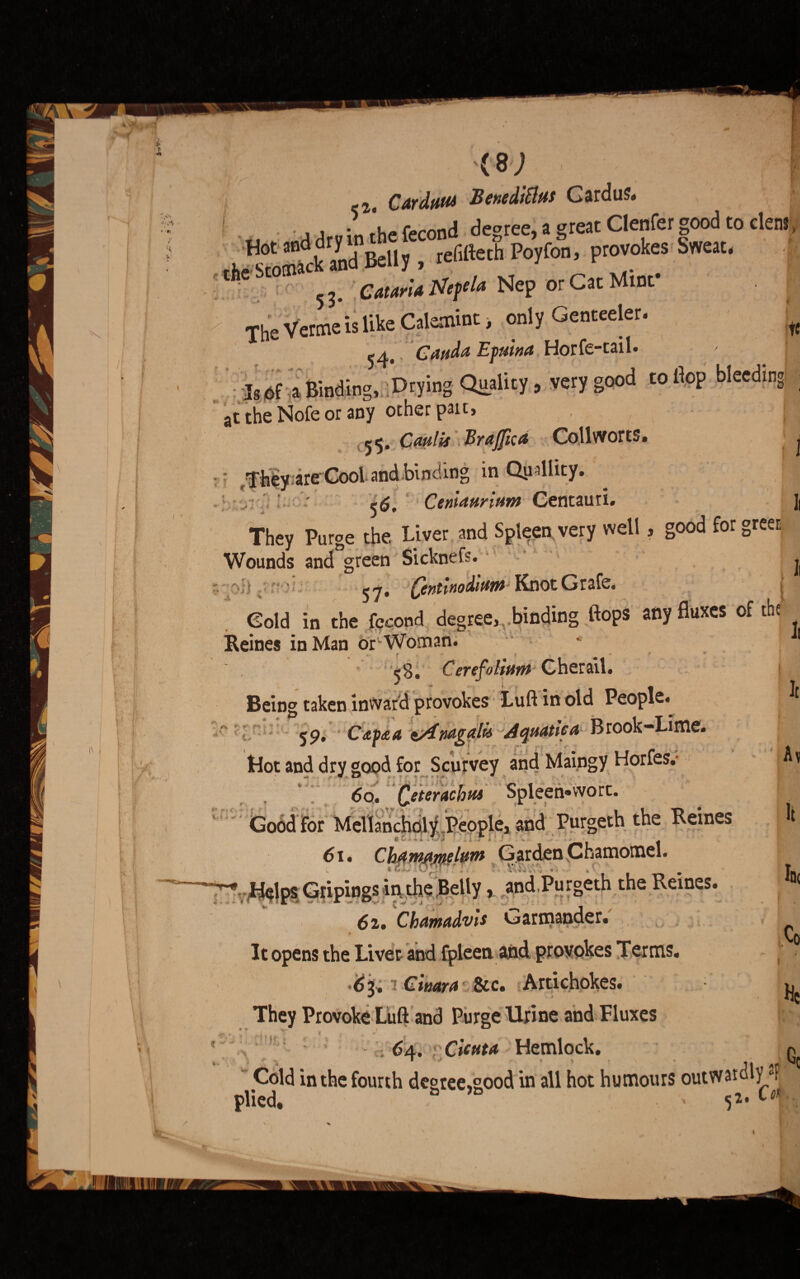 (8)
52. Carduus Benedictus Cardus.
Hot and dry in the ſecond degree, a great Clenſer good to clens,
the Stomack and Belly, reſiſteth Poyſon, provokes Sweat.
53. Cataria Nepela Nep or Cat Mint.
The Verme is like Calemint, only Genteeler.
54. Cauda Epuina Horſe-tail.
Is of a Binding, Drying Quality, very good to ſtop bleeding
at the Noſe or any other pait,
55. Caulis Braſſica Collworts.
They are Cool and binding in Quallity.
56. Centaurium Centauri.
They Purge the Liver and Spleen very well, good for green
Wounds and green Sickneſs.
57. Centinodium Knot Graſe.
Cold in the ſecond degree, binding ſtops any fluxes of the
Reines in Man or Woman.
58. Cerefolium Cherail.
Being taken inward provokes Luſt in old People.
59. Capæa Anagalis Aquatica Brook-Lime.
Hot and dry good for Scurvey and Maingy Horſes.
60. Ceterachus Spleen-wort.
Good for Mellancholy People, and Purgeth the Reines
61. Chamamelum Garden Chamomel.
Helps Gripings in the Belly, and Purgeth the Reines.
62. Chamadvis Garmander.
It opens the Liver and ſpleen and provokes Terms.
63. Cinara &c. Artichokes.
They Provoke Luſt and Purge Urine and Fluxes
64. Cicuta Hemlock.
Cold in the fourth degree, good in all hot humours outwardly ap
plied.
52. Co